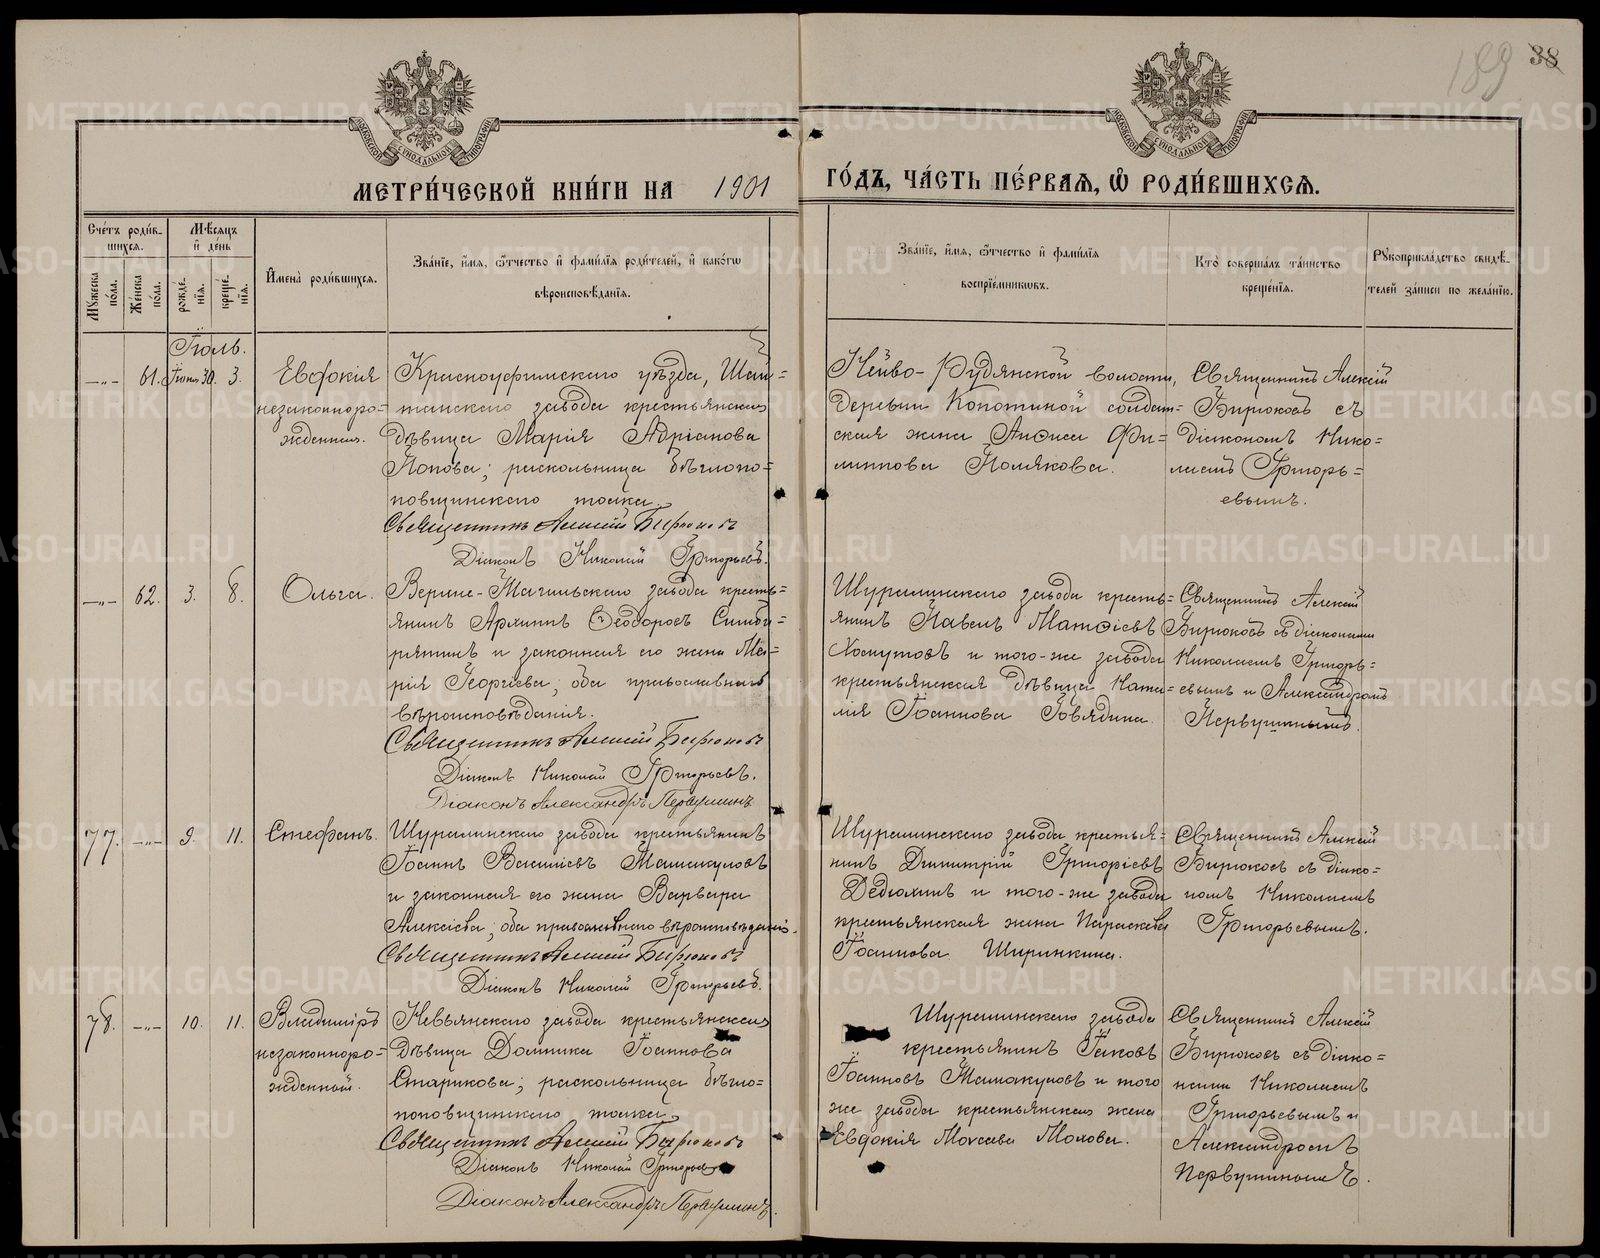 189 38
МЕТРИ́ЧЕСКОЙ КНИ́ГИ НА 1901 ГО́ДЪ, ЧА́СТЬ ПЕ́РВАЯ, Ѽ РОДИ́ВШИХСЯ.
Сче́тъ роди́вшихся.
Мѣ́сяцъ и҆ де́нь
Мꙋ́жеска по́ла.
Же́нска по́ла.
рожде́нїѧ.
креще́нїѧ.
И҆мена̀ роди́вшихсѧ.
Зва́нїе, и҆́мѧ, ѻ҆́тчество и҆ фами́лїѧ роди́телей, и҆ како́гѡ вѣроисповѣ́данїѧ.
Зва́нїе, и҆́мѧ, ѻ҆́тчество и҆ фами́лїѧ воспрїе́мниковъ.
Кто̀ соверша́лъ та́инство креще́нїѧ.
Рꙋкоприкла́дство свидѣ́телей за́писи по жела́нїю.
Іюль.
—„— 61. Іюня 30. 3.
Евдокія
незаконноро=
жденная.
Красноуфимскаго уѣзда, Шай=
танскаго завода крестьянская
дѣвица Марія Адріанова
Попова; раскольница бѣглопо=
повщинскаго толка.
Священникъ Алексій Бирюковъ
Діаконъ Николай Григорьевъ.
Нейво-Рудянской волости,
деревни Копотиной солдат=
ская жена Анѳиса Фи=
липпова Полякова.
Священникъ Алексій
Бирюковъ съ
діакономъ Нико=
лаемъ Григорь=
евымъ.
—„— 62. 3. 8.
Ольга.
Верхне-Тагильскаго завода кресть=
янинъ Архиппъ Ѳеодоровъ Симби=
рятинъ и законная его жена Ма=
рія Георгіева; оба православнаго
вѣроисповѣданія.
Священникъ Алексій Бирюковъ
Діаконъ Николай Григорьевъ.
Діаконъ Александръ Первушинъ
Шуралинскаго завода кресть=
янинъ Павелъ Матѳіевъ
Хомутовъ и того-же завода
крестьянская дѣвица Ната=
лія Іоаннова Говядина.
Священникъ Алексій
Бирюковъ съ діаконами
Николаемъ Григорь=
евымъ и Александромъ
Первушинымъ.
77. —„— 9. 11.
Стефанъ.
Шуралинскаго завода крестьянинъ
Іоаннъ Василіевъ Мамакуловъ
и законная его жена Варвара
Алексіева; оба православнаго вѣроисповѣданія.
Священникъ Алексій Бирюковъ
Діаконъ Николай Григорьевъ.
Шуралинскаго завода крестья=
нинъ Димитрій Григоріевъ
Дедюхинъ и того-же завода
крестьянская жена Параскева
Іоаннова Ширинкина.
Священникъ Алексій
Бирюковъ съ діако=
номъ Николаемъ
Григорьевымъ.
78. —„— 10. 11.
Владиміръ
незаконноро=
жденный.
Невьянскаго завода крестьянская
дѣвица Домника Іоаннова
Старикова; раскольница бѣгло=
поповщинскаго толка.
Священникъ Алексій Бирюковъ
Діаконъ Николай Григорьевъ
Діаконъ Александръ Первушинъ.
Шуралинскаго завода
крестьянинъ Іаковъ
Іоанновъ Мамакуловъ и того
же завода крестьянская жена
Евдокія Моисеева Молова.
Священникъ Алексій
Бирюковъ съ діако=
нами Николаемъ
Григорьевымъ и
Александромъ
Первушинымъ.
METRIKI.GASO-URAL.RU